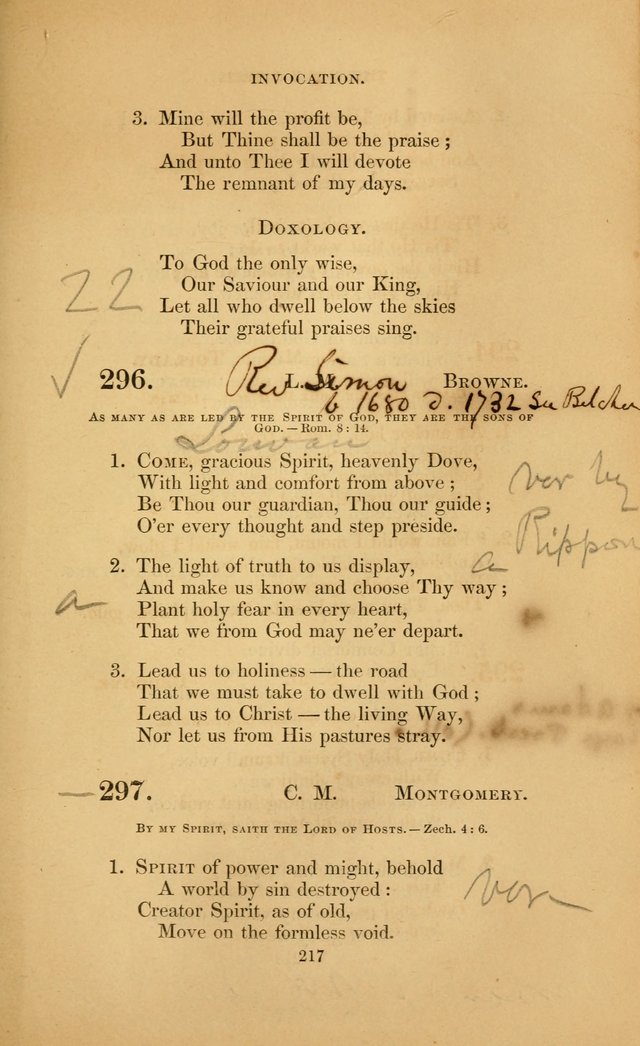 INVOCATION.
3. Mine will the profit be,
But Thine shall be the praise ;
And unto Thee I will devote
The remnant of my days.
DOXOLOGY.
To God the only wise,
Our Saviour and our King,
22
Let all who dwell below the skies
Their grateful praises sing.
√ 296. Rev L. Simon BROWNE.
b 1680 d. 1732 See Belcher
AS MANY AS ARE LED BY THE SPIRIT OF GOD, THEY ARE THE SONS OF
GOD. — Rom. 8 : 14.
Louvan
1. COME, gracious Spirit, heavenly Dove,
With light and comfort from above ;
Be Thou our guardian, Thou our guide ;
O'er every thought and step preside.
ver by
Rippon
2. The light of truth to us display, a
And make us know and choose Thy way ;
a Plant holy fear in every heart,
That we from God may ne'er depart.
3. Lead us to holiness — the road
That we must take to dwell with God ;
Lead us to Christ — the living Way,
Nor let us from His pastures stray.
— 297. C. M. MONTGOMERY.
BY MY SPIRIT, SAITH THE LORD OF HOSTS. — Zech. 4 : 6.
1. SPIRIT of power and might, behold
A world by sin destroyed :
Creator Spirit, as of old,
Move on the formless void.
ver
217